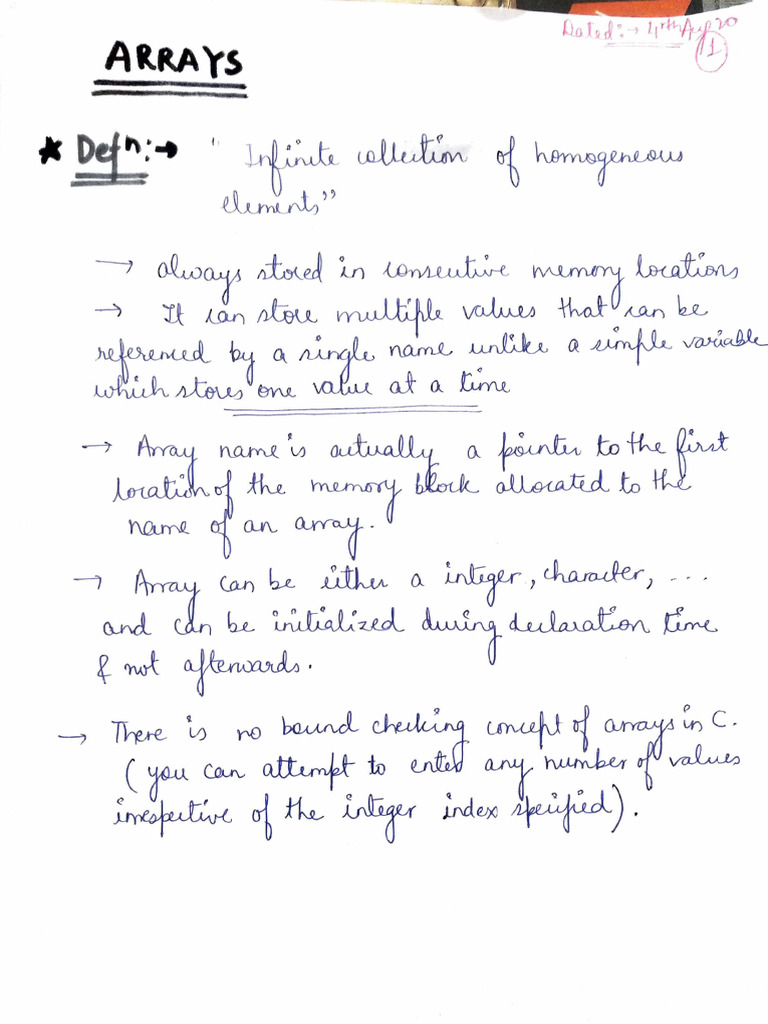 Dated:→ 4rth Aug 20
1
ARRAYS
* Defn:→ " Infinite collection of homogeneous
elements"
→ always stored in consecutive memory locations
→ It can store multiple values that can be
referenced by a single name unlike a simple variable
which stores one value at a time
→ Array name is actually a pointer to the first
location of the memory block allocated to the
name of an array.
→ Array can be either a integer, character, ...
and can be initialized during declaration time
& not afterwards.
→ There is no bound checking concept of arrays in C.
(you can attempt to enter any number of values
irrespective of the integer index specified).